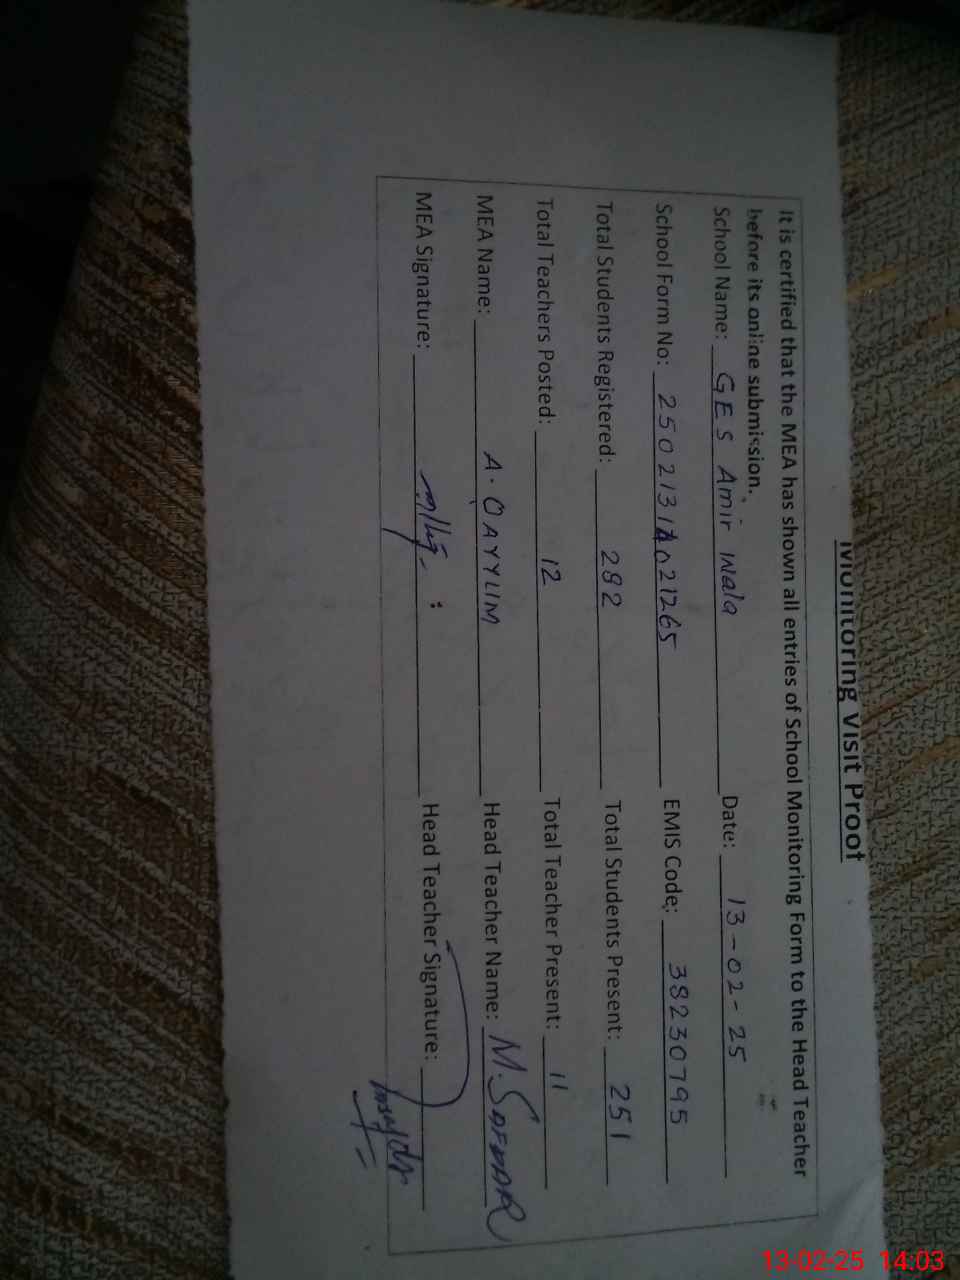 Monitoring Visit Proof
It is certified that the MEA has shown all entries of School Monitoring Form to the Head Teacher
before its online submission.
School Name: GES Amir Wala Date: 13-02-25
School Form No: EMIS Code: 38230795
Total Students Registered: 282 Total Students Present: 251
Total Teachers Posted: 12 Total Teacher Present: 11
MEA Name: A. QAYYUM Head Teacher Name: M. SAFDAR
MEA Signature: Head Teacher Signature:
13-02-25 14:03